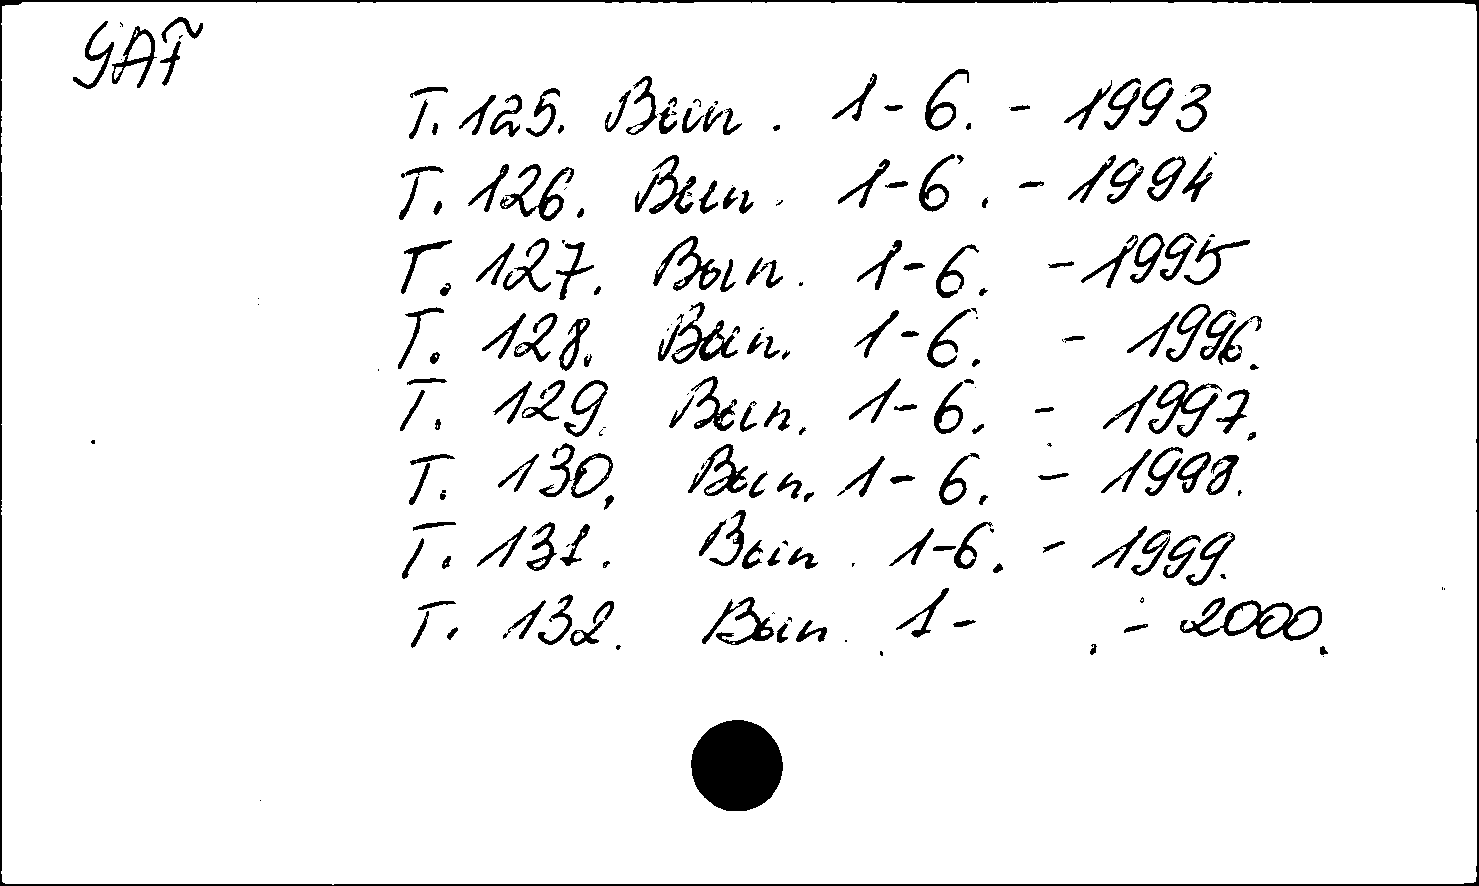 GAF
Т. 125. Вып. 1-6. - 1993
Т. 126. Вып. 1-6. - 1994
Т. 127. Вып. 1-6. - 1995
Т. 128. Вып. 1-6. - 1996.
Т. 129. Вып. 1-6. - 1997.
Т. 130. Вып. 1-6. - 1998.
Т. 131. Вып. 1-6. - 1999.
Т. 132. Вып. 1- . - 2000.